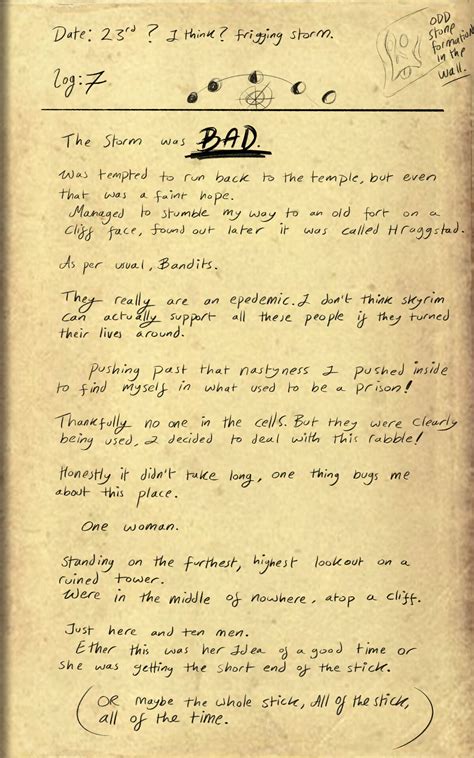 Date: 23rd ? I think? frigging storm.
ODD
stone
formation
in the
wall.
Log: 7
The Storm was BAD.
Was tempted to run back to the temple, but even
that was a faint hope.
Managed to stumble my way to an old fort on a
Cliff face, found out later it was called Hraggstad.
As per usual, Bandits.
They really are an epedemic. I don't think skyrim
can actually support all these people if they turned
their lives around.
Pushing past that nastyness I pushed inside
to find myself in what used to be a prison!
Thankfully no one in the cells. But they were clearly
being used, I decided to deal with this rabble!
Honestly it didn't take long, one thing bugs me
about this place.
One woman.
Standing on the furthest, highest lookout on a
ruined tower.
Were in the middle of nowhere, atop a cliff.
Just here and ten men.
Ether this was her Idea of a good time or
she was getting the short end of the stick.
(OR maybe the whole stick, All of the stick,
all of the time.)